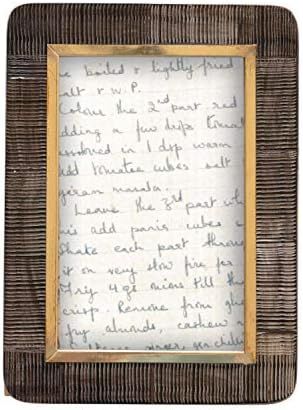 be boiled & lightly fried
alt & W.P.
Colour the 2nd part red
dding a few drops
dissolved in 1 dsp warm
dd tomatoe cubes salt
garam masala.
Leave the 3rd part wh
his add panir cubes &
Shake each part throu
it on very slow fire for
Fry 4 ge onions till th
crisp. Remove from ghe
fry almonds, cashew n
ginger, gr. chili